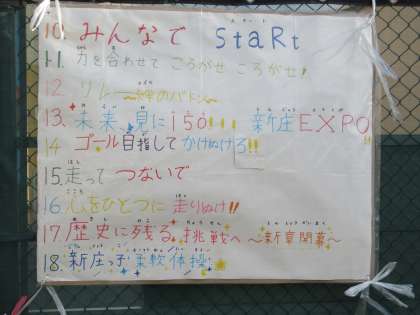 10. みんなで StaRt
11. 力を合わせて こうがせ ころがせ!
12 リレー〜絆のバトン〜
13. 未来、見に i 50!!! 新庄 EXPO!!
14 ゴール目指して かけぬけろ!!
15. 走って つないで
16 心をひとつに 走りぬけ!!
17. 歴史に残る 挑戦へ 〜新章開幕〜
18. 新庄っ子 柔軟体操!